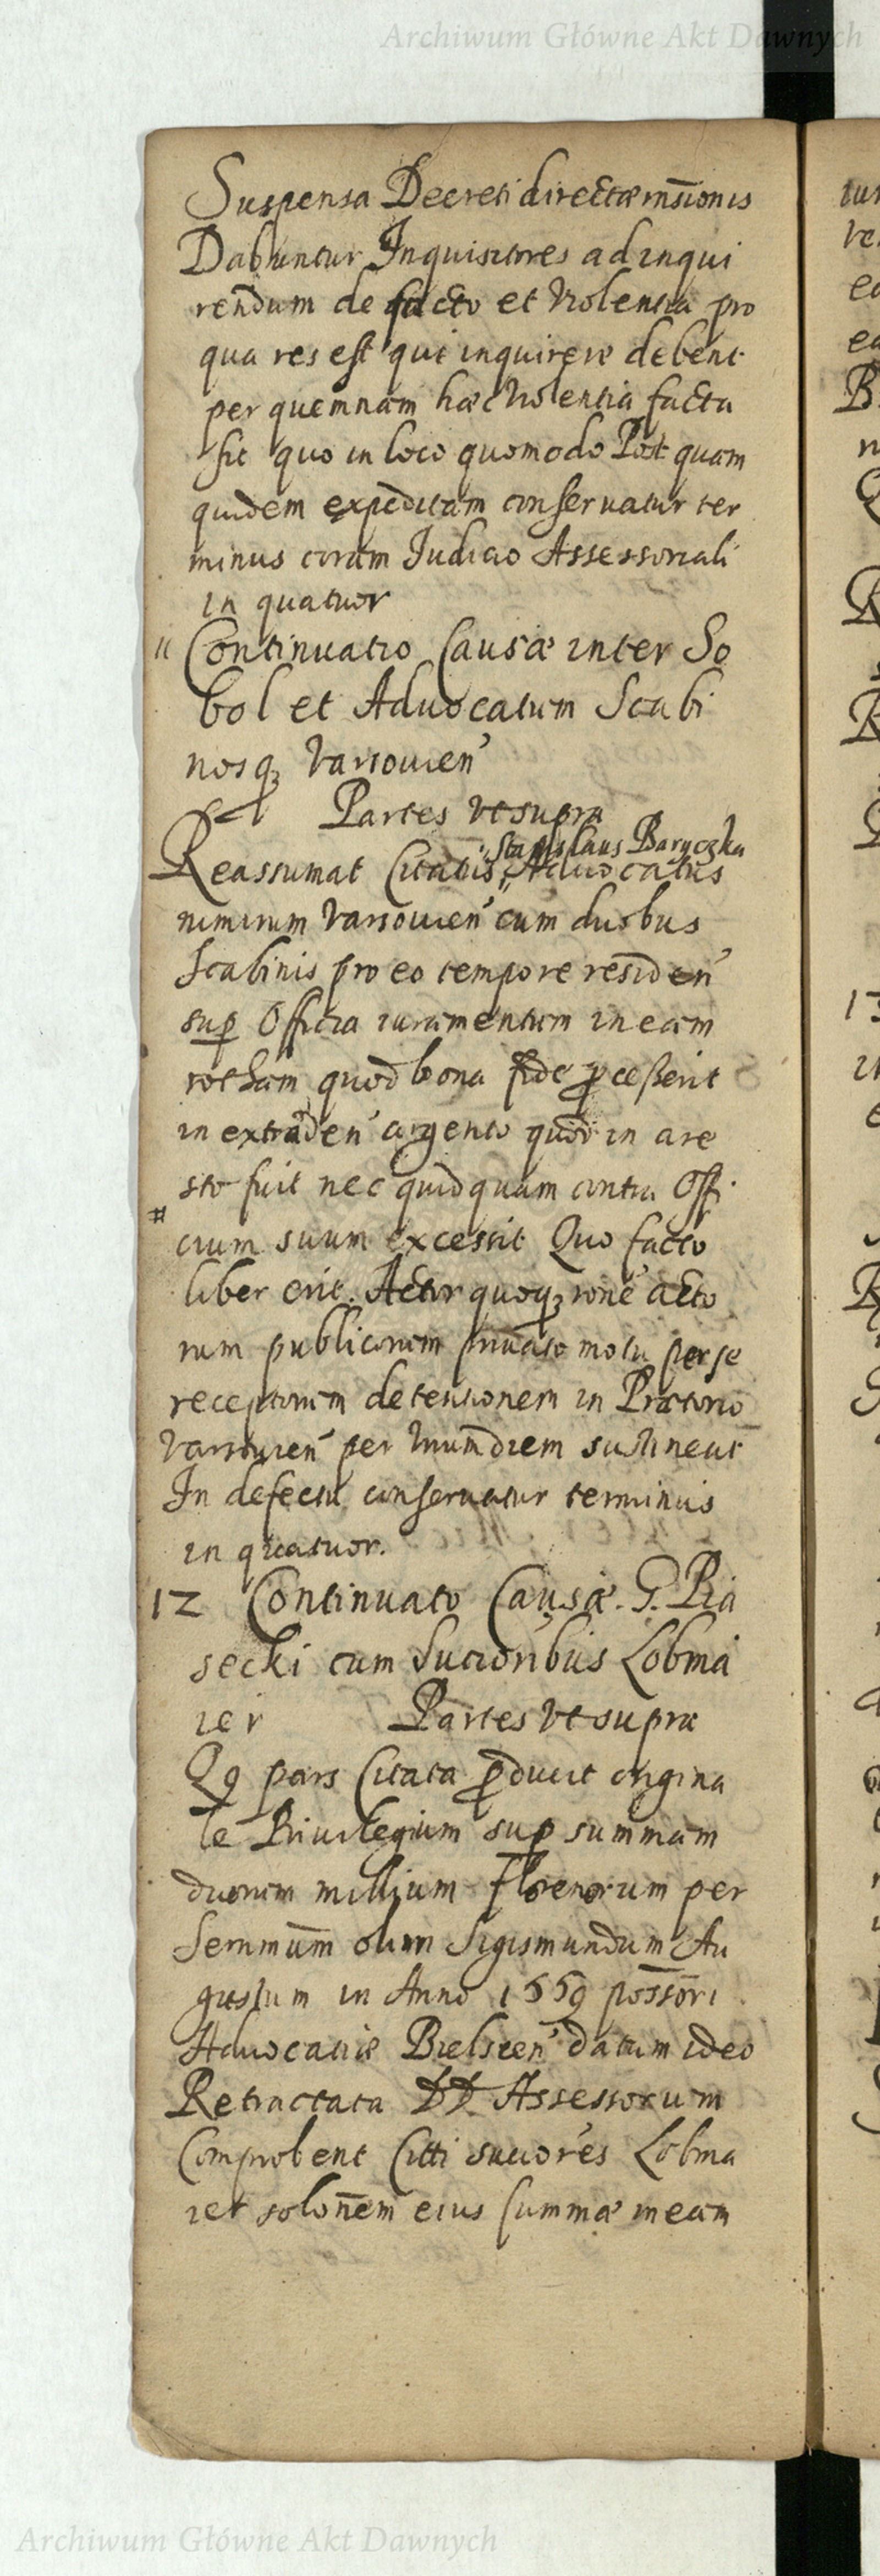 Archiwum Główne Akt Dawnych
Suspensa Decreti directæ msionis
Dabuntur Inquisitores ad inqui
rendum de facto et violentia pro
qua res est qui inquirere debent
per quemnam hæc violentia facta
sit quo in loco quomodo Post quam
quidem expeditam conservatur ter
minus coram Iudicio Assessoriali
in quatuor
11 Continuatio Causæ inter So
bol et Advocatum Scabi
nosq Varsovien
Partes vt supra
Stanislaus Baryczka
Reassumat Citatus Advocatus
nimirum Varsovien cum duobus
Scabinis pro eo tempore residen
sup Officia iuramentum in eam
rotham quod bona fide pcesserit
in extraden argento quod in are
sto fuit nec quidquam contra Offi
#
cium suum excessit Quo facto
liber erit. Actor quoq rone acto
rum publicorum privato motu per se
receptorum detensionem in Prætorio
Varsovien per vnum diem sustineat
In defectu conservatur terminus
in quatuor.
12 Continuato Causæ G. Pia
secki cum Sucioribus Lobma
ier Partes vt supra
Qq pars Citata pducit origina
le Privilegium sup summam
duorum millium Florenorum per
Sernmum olim Sigismundum Au
gustum in Anno 1559 possori
Advocatiæ Bielscen datum ideo
Retractata DD Assessorum
Comprobent Citti sucores Lobma
ier solonem eius summæ in eam
Archiwum Główne Akt Dawnych